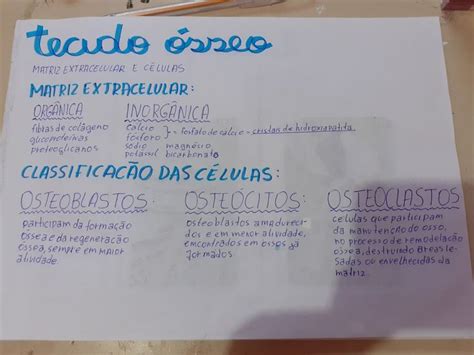 tecido ósseo
MATRIZ EXTRACELULAR E CÉLULAS
MATRIZ EXTRACELULAR:
ORGÂNICA
fibras de colágeno
glicoproteínas
proteoglicanos
INORGÂNICA
cálcio
fósforo } = fosfato de cálcio = cristais de hidroxiapatita
sódio magnésio
potássio bicarbonato
CLASSIFICAÇÃO DAS CÉLULAS:
OSTEOBLASTOS:
participam da formação
óssea e da regeneração
óssea, sempre em maior
atividade.
OSTEÓCITOS:
osteoblastos amadureci-
dos e em menor atividade,
encontrados em ossos já
formados
OSTEOCLASTOS
células que participam
da manutenção do osso,
no processo de remodelação
óssea, destruindo áreas le-
sadas ou envelhecidas da
matriz.